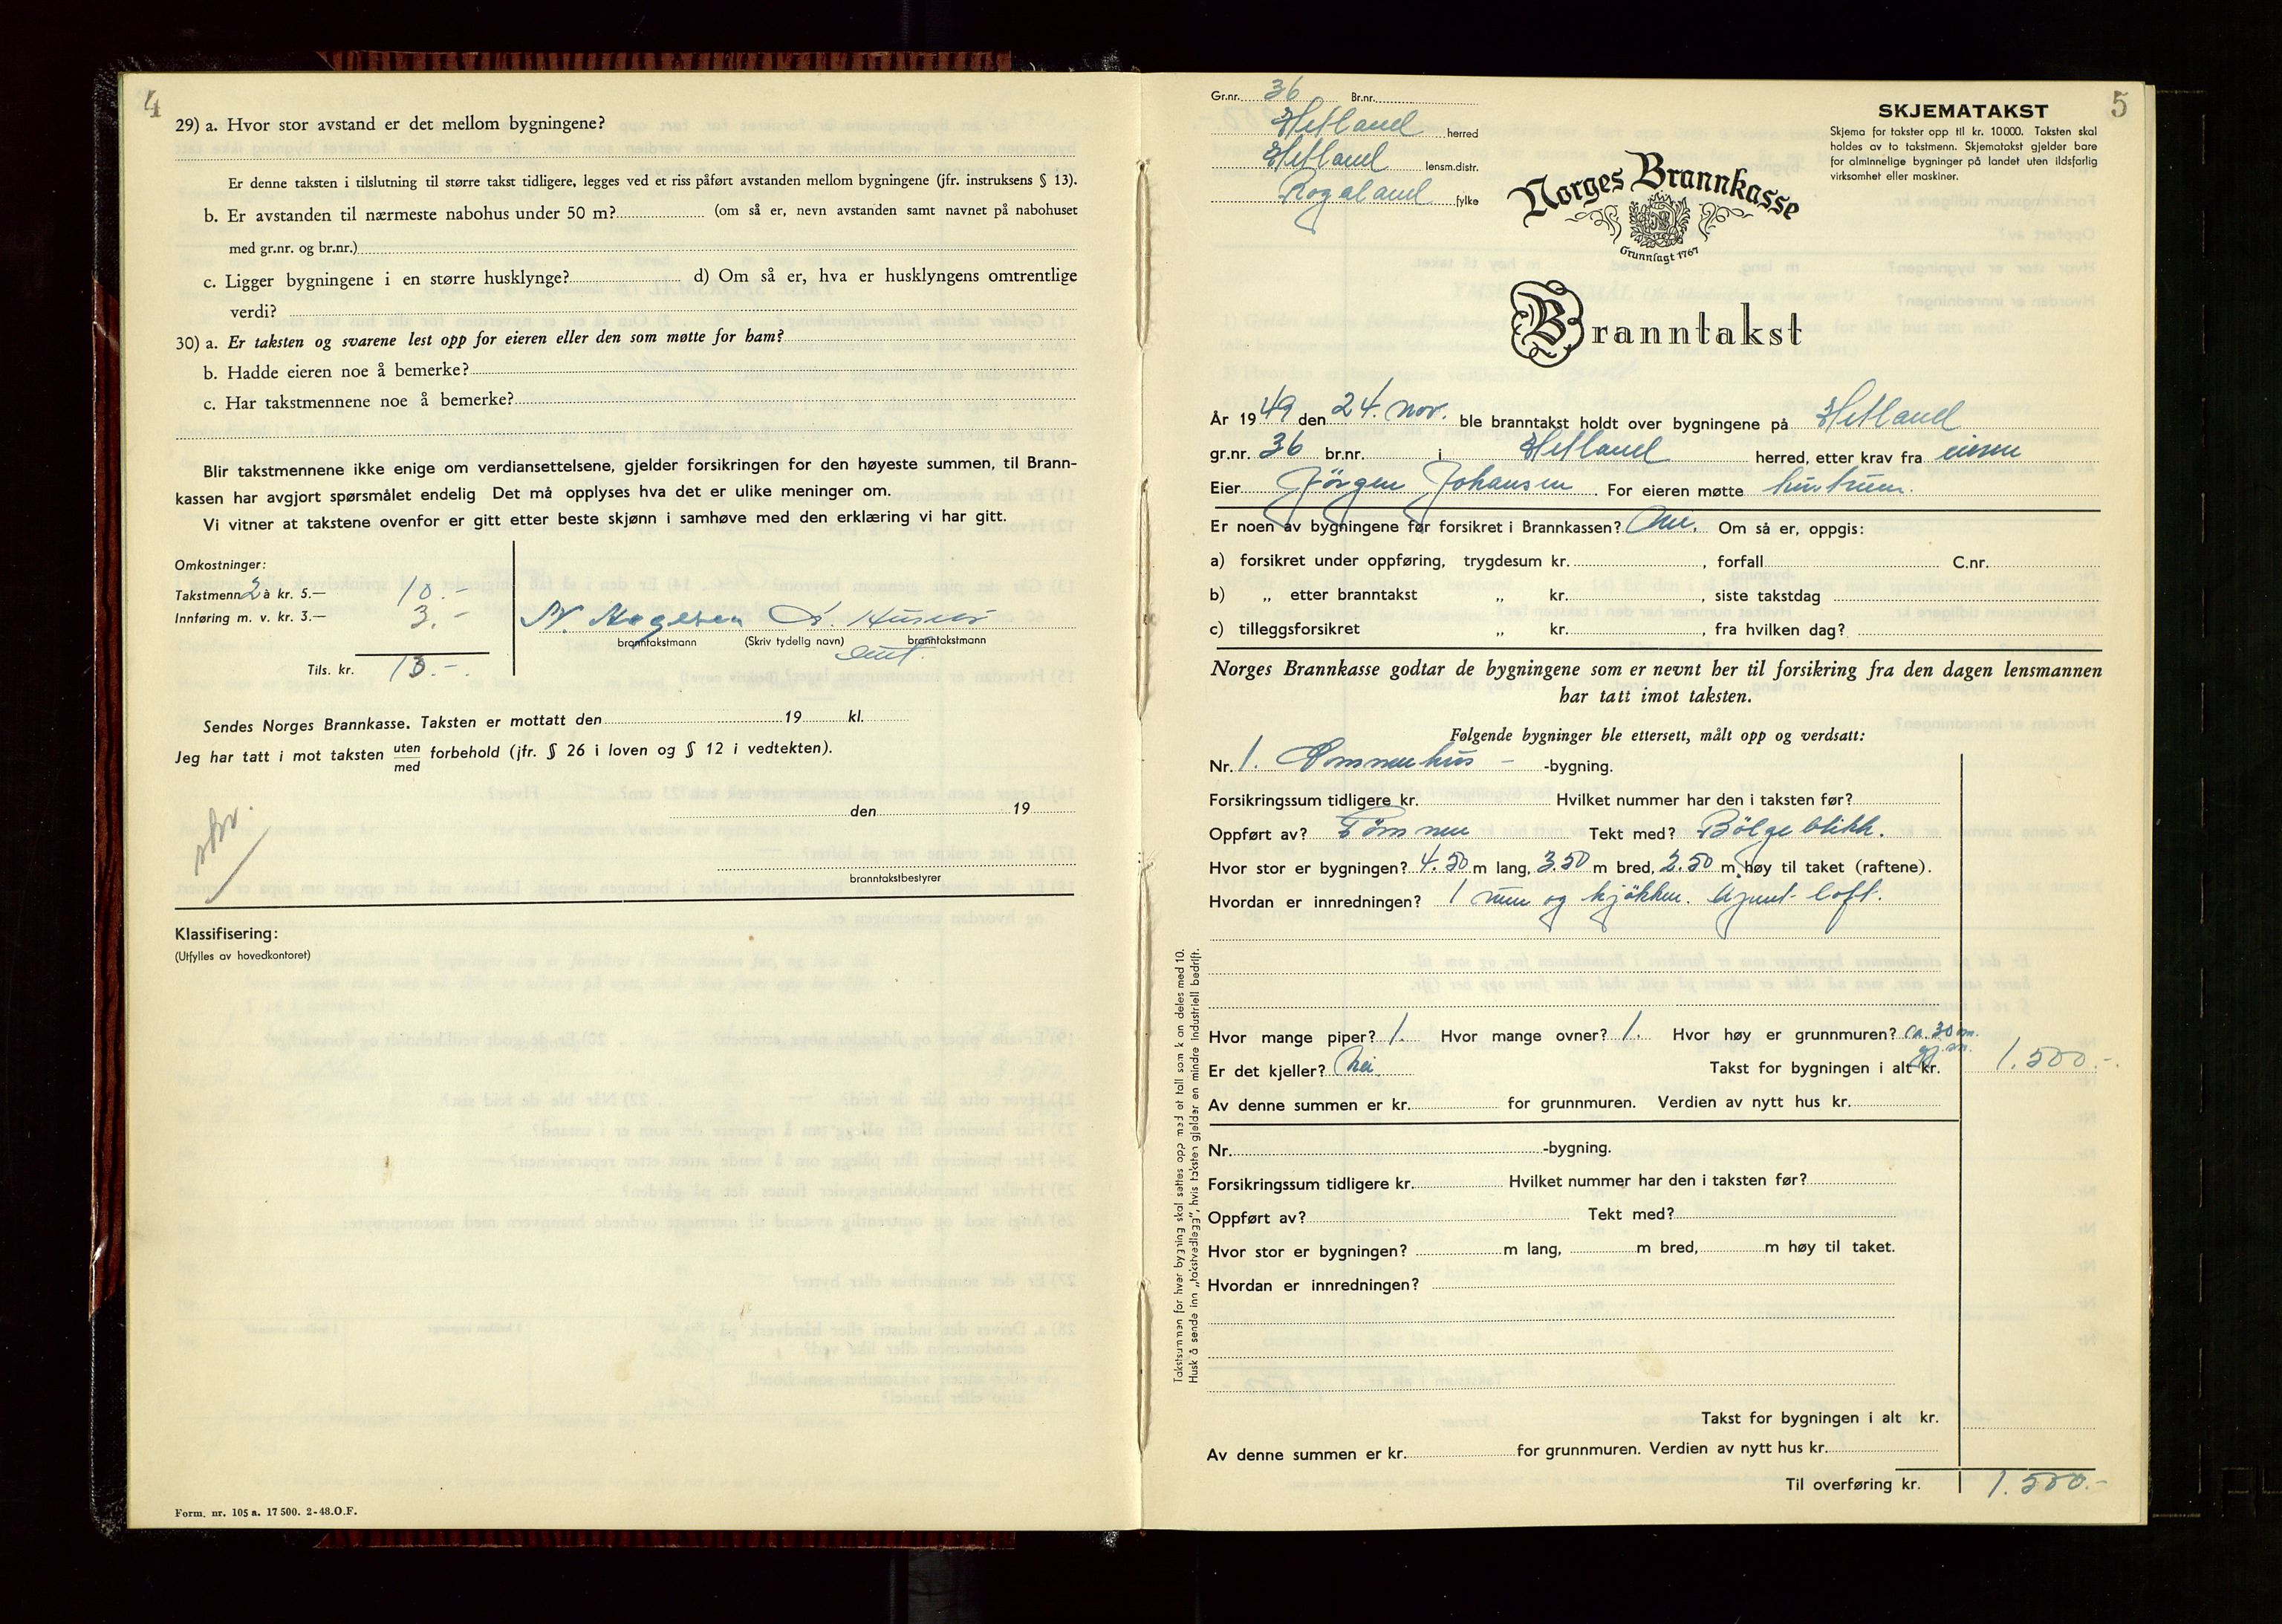 4
29) a. Hvor stor avstand er det mellom bygningene?
Er denne taksten i tilslutning til større takst tidligere, legges ved et riss påført avstanden mellom bygningene (jfr. instruksens § 13).
b. Er avstanden til nærmeste nabohus under 50 m? (om så er, nevn avstanden samt navnet på nabohuset
med gr.nr. og br.nr.)
c. Ligger bygningene i en større husklynge? d) Om så er, hva er husklyngens omtrentlige
verdi?
30) a. Er taksten og svarene lest opp for eieren eller den som møtte for ham?
b. Hadde eieren noe å bemerke?
c. Har takstmennene noe å bemerke?
Blir takstmennene ikke enige om verdiansettelsene, gjelder forsikringen for den høyeste summen, til Brann-
kassen har avgjort spørsmålet endelig Det må opplyses hva det er ulike meninger om.
Vi vitner at takstene ovenfor er gitt etter beste skjønn i samhøve med den erklæring vi har gitt.
Omkostninger:
Takstmenn 2 à kr. 5.— 10.-
Innføring m. v. kr. 3.— 3.-
branntakstmann (Skriv tydelig navn) branntakstmann
Tils. kr. 13.-
Sendes Norges Brannkasse. Taksten er mottatt den 19 kl.
Jeg har tatt i mot taksten uten forbehold (jfr. § 26 i loven og § 12 i vedtekten).
med
den 19
branntakstbestyrer
Klassifisering:
(Utfylles av hovedkontoret)
Form. nr. 105 a. 17 500. 2-48.O.F.
5
Gr.nr. 36 Br.nr.
Hetland herred
Hetland lensm.distr.
Rogaland fylke
SKJEMATAKST
Skjema for takster opp til kr. 10000. Taksten skal
holdes av to takstmenn. Skjematakst gjelder bare
for alminnelige bygninger på landet uten ildsfarlig
virksomhet eller maskiner.
Norges Brannkasse
Grunnlagt 1767
Branntakst
År 1949 den 24. nov. ble branntakst holdt over bygningene på Hetland
gr.nr. 36 br.nr. i Hetland herred, etter krav fra eieren
Eier Jörgen Johansen. For eieren møtte hustruen.
Er noen av bygningene før forsikret i Brannkassen? Om så er, oppgis:
a) forsikret under oppføring, trygdesum kr. , forfall C.nr.
b) „ etter branntakst „ kr. , siste takstdag
c) tilleggsforsikret „ kr. , fra hvilken dag?
Norges Brannkasse godtar de bygningene som er nevnt her til forsikring fra den dagen lensmannen
har tatt imot taksten.
Følgende bygninger ble ettersett, målt opp og verdsatt:
Nr. 1. Sommerhus - -bygning.
Forsikringssum tidligere kr. Hvilket nummer har den i taksten før?
Oppført av? Tömmer Tekt med? Bölgeblikk.
Hvor stor er bygningen? 4.50 m lang, 3.50 m bred, 2.50 m høy til taket (raftene).
Hvordan er innredningen? 1 rum og kjökken. loft.
Hvor mange piper? 1. Hvor mange ovner? 1. Hvor høy er grunnmuren? ca. 30 cm.
gj.sn.
Er det kjeller? Nei. Takst for bygningen i alt kr. 1.500.-
Av denne summen er kr. for grunnmuren. Verdien av nytt hus kr.
Nr. -bygning.
Forsikringssum tidligere kr. Hvilket nummer har den i taksten før?
Oppført av? Tekt med?
Hvor stor er bygningen? m lang, m bred, m høy til taket.
Hvordan er innredningen?
Takst for bygningen i alt kr.
Av denne summen er kr. for grunnmuren. Verdien av nytt hus kr.
Til overføring kr. 1.500.-
Takstsummen for hver bygning skal settes opp med et tall som kan deles med 10.
Husk å sende inn „takstvedlegg", hvis taksten gjelder en mindre industriell bedrift.